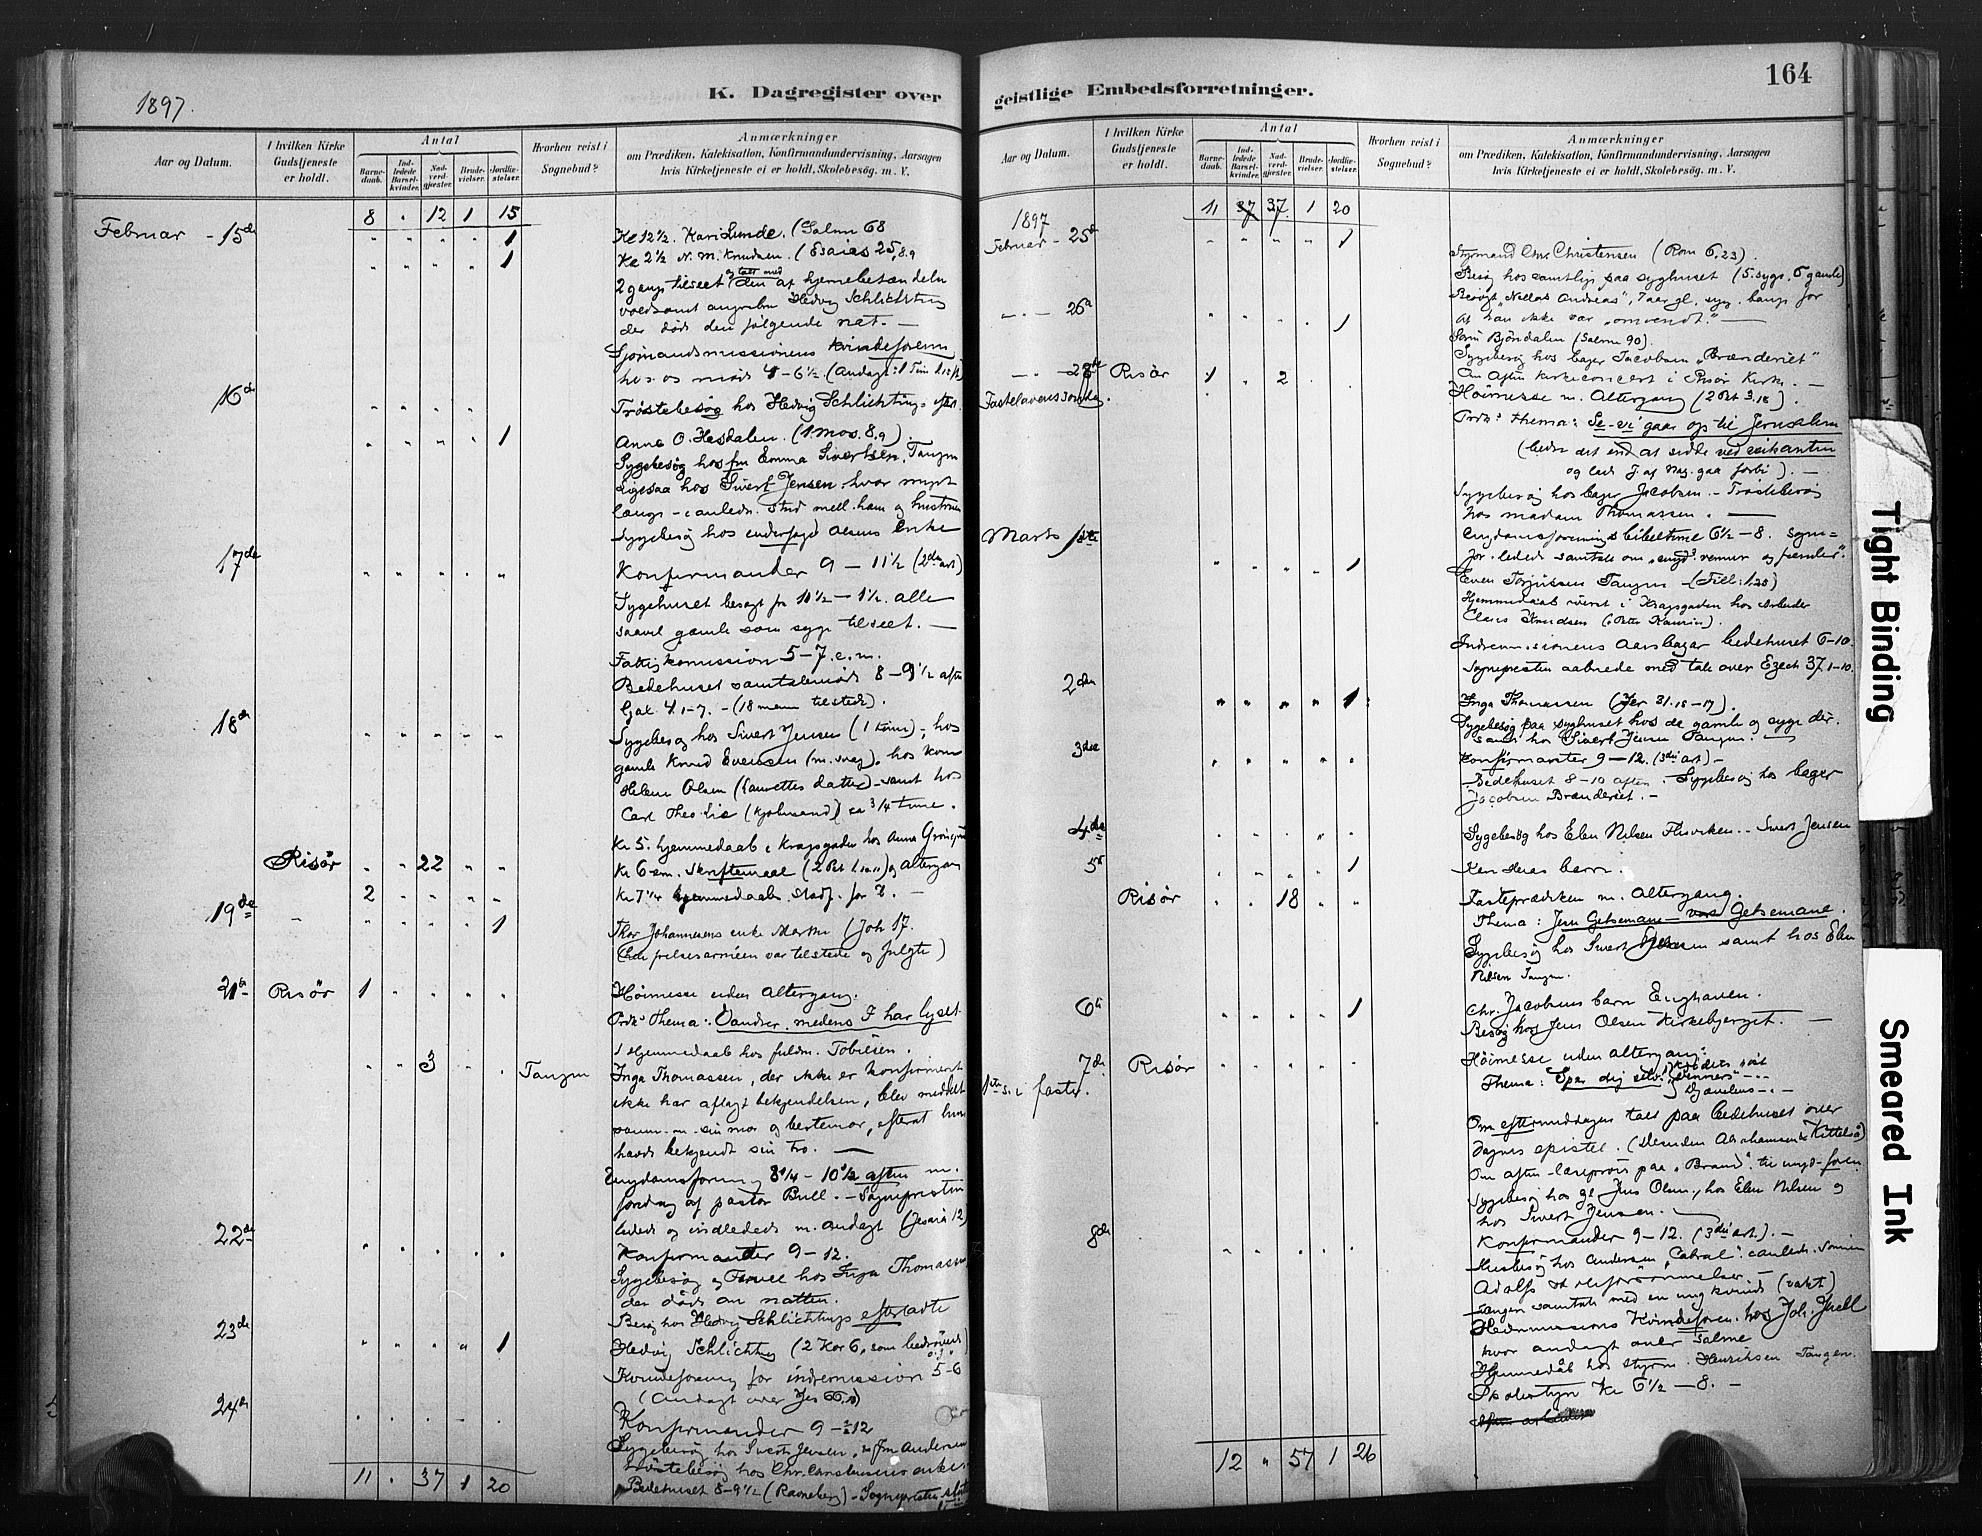 1897.
K. Dagregister over
Aar og Datum.
I hvilken Kirke Gudstjeneste er holdt.
Antal
Barnedaab.
Indledede Barselkvinder.
Nadverdgjester.
Brudevielser.
Jordfæstelser.
Hvorhen reist i Sognebud?
Anmærkninger
om Prædiken, Katekisation, Konfirmandundervisning, Aarsagen
hvis Kirketjeneste ei er holdt, Skolebesøg. m. V.
8 " 12 1 15
Februar - 15de " " " " 1 Kl 12½. Kari Lunde. (Salme 68
" " " " 1 Kl 2½ N. M. Knudsen. (Esaias 25,8.9
2 gange tilseet og talt med den af hjernebetændelse
voldsomt angrebne Hedvig Schlichting
der døde den følgende nat. —
Sjømandsmissionens kvindeforen
hos os møde 4-6½. (Andagt:
16de " " " " Trøstebesøg hos Hedvig Schlichtings efter
" " " " 1 Anne O. Hesdalen. (1 Mos. 8,9).
Sygebesøg hos fru Emma Sivertsen, Tangen
Ligesaa hos Sivert Jensen hvor meget
længe - anledn. strid mell. ham og hustruen
Sygebesøg hos Olsens enke
17de " " " " " Konfirmander 9 - 11½ (2den art)
Sygehuset besøgt fra 11½ - 1½. alle
saavel gamle som syge tilseet. —
Fattigkomission 5-7 e.m.
Bedehuset samtalemøde 8-9½ aften
Gal. 4.1-7. - (18 mænd tilstede).
18de " " " " " Sygebesøg hos Sivert Jensen (1 time), hos
gamle Knud Evensen (m. svag), hos kone
Helene Olsen (Laurettes datter) - samt hos
Carl Theo. Lie (kjøbmand) ca ¾ time.
Kl 5. hjemmedaab i Kragsgaden hos Anna
Risør " " 22 " " Kl 6 em. Skriftemaal (2 Pet 1.10.11) og altergang
2 " " " " Kl 7¼ hjemmedaab. Stadf. for 2. —
19de " " " " 1 Thor Johannesens enke Marthe (Joh 17.
(Frelsesarméen var tilstede og fulgte)
21de Risør 1 " " " " Høimesse uden altergang.
Prdk's Thema: Vandrer, medens I har lyset.
1 Hjemmedaab hos fuldm. Tobiesen.
" " 3 " " Tangen Inga Thomassen, der ikke er konfirmeret
ikke har aflagt bekjendelsen, blev meddelt
samm. m. sin mor og bestemor, efterat hun
havde bekjendt sin tro. —
Ungdomsforening 8¼ - 10½ aften m.
foredrag af pastor Bull. - Sognepresten
ledede og indledede m. andagt (Jesaia 12)
22de " " " " " Konfirmander 9-12.
Sygebesøg og Farvel hos Inga Thomassen
der døde om natten.
Besøg hos Hedvig Schlichtings efterladte
23de " " " " 1 Hedvig Schlichting (2 Kor 6, som bedrøvede)
Kvindeforening for indremission 5-6
(Andagt over Jes
24de " " " " " Konfirmander 9-12
Sygebesøg hos Sivert Jensen, fru Andersen
Trøstebesøg hos Chr. Christensens enke.
11 " 37 1 20 Bedehuset 8-9½ (Ravneberg) - Sognepresten
164
geistlige Embedsforretninger.
Aar og Datum.
I hvilken Kirke Gudstjeneste er holdt.
Antal
Barnedaab.
Indledede Barselkvinder.
Nadverdgjester.
Brudevielser.
Jordfæstelser.
Hvorhen reist i Sognebud?
Anmærkninger
om Prædiken, Katekisation, Konfirmandundervisning, Aarsagen
hvis Kirketjeneste ei er holdt, Skolebesøg. m. V.
1897 11 37 37 1 20
Februar - 25de " " " " 1 Styrmand Chr. Christensen (Rom 6,23).
Besøg hos samtlige paa syghuset (5 syge, 6 gamle)
Besøgt "Nellas Andreas", 7 aar gl., syg, bange for
" - 26de " " " " 1 at han ikke var "omvendt." —
Bjøndalen (Salme 90).
Sygebesøg hos bager Jacobsen "Brænderiet"
Om aften kirkeconcert i Risør Kirke. —
" - 28de Risør 1 " 2 " " Høimesse m. Altergang (2 Pet 3.18).
Fastelavenssøndag.
Prdk's Thema: Se - vi gaar op til Jerusalem
(bedre det end at sidde ved veikanten
og lade J. af Naz. gaa forbi). —
Sygebesøg hos bager Jacobsen. - Trøstebesøg
hos madam Thomassen. —
Marts 1ste Ungdomsforenings bibeltime 6½-8. Sogne=
" " " " 1 for. ledede samtale om "ungd's venner og fiender".
Even Torjussen Tangen - (Fill: 1,23)
Hjemmedaab været i Kragsgaden hos Arbeider
Claus Knudsen
Indremissionens Aarsbazar bedehuset 6-10.
Sognepresten aabnede med tale over Ezech 37.1-10.
2den " " " " 1 Inga Thomassen (Jer 31.15-17).
Sygebesøg paa syghuset hos de gamle og syge der.
samt hos Sivert Jensen Tangen. —
3die " " " " " Konfirmanter 9-12. (3die art) -
Bedehuset 8-10 aften. Sygebesøg hos bager
Jacobsen Brænderiet. -
4de " " " " " Sygebesøg hos Elen Nilsen Flisviken. - Sivert Jensen
5te " " " " 1 barn.
Risør " " 18 " " Fasteprædiken m. Altergang.
Thema: Jesu Getsemane - vort Getsemane.
Sygebesøg hos Sivert Jensen samt hos Elen
Nilsen Tangen.
6te " " " " 1 Chr. Jacobsens barn Enghaven.
Besøg hos Jens Olsen Kirkebjerget. —
7de Risør " " " " " Høimesse uden altergang.
1ste s. i faste. Thema: Spar dig selv!
Om eftermiddagen tale paa bedehuset over
dagens epistel.
Om aften læseprøve paa "Brand" til ungd-foren
Sygebesøg hos gl. Jens Olsen, hos Elen Nilsen og
hos Sivert Jensen.
8de " " " " " Konfirmander 9-12. (3die art.). —
Husbesøg hos Andersen "Cabral" i anledn. sønnen
Adolfs
samtale med en ung kvinde (vakt)
Hedn.missions Kvindeforen. hos Joh. Juell
hvor andagt over salme
Hjemmedåb hos styrm. Henriksen Tangen.
Skolestyre Kl 6½-8. —
12 " 57 1 26
Tight Binding
Smeared Ink